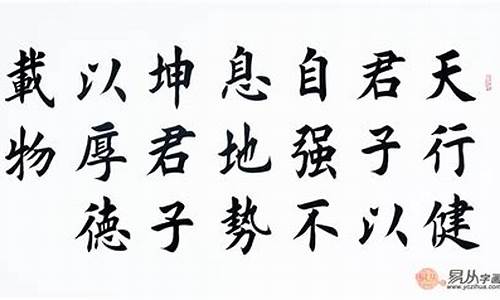 天行健
君子以
自强不
息地勢
坤君子
以厚德
載物
易从字画
www.yczihua.com